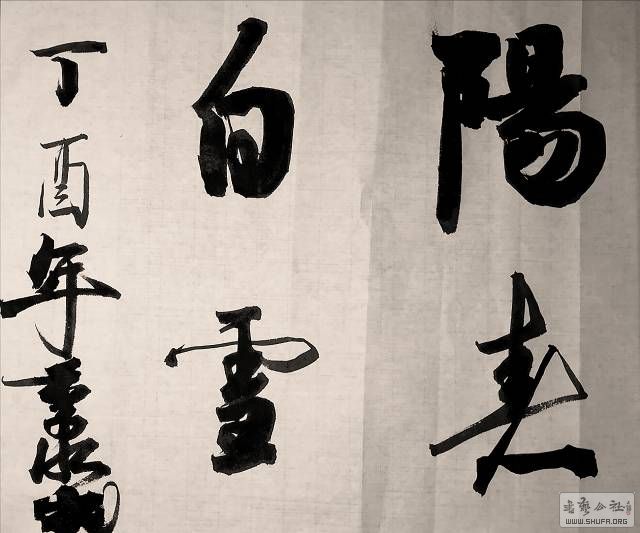 陽春
白雪
丁酉年
书艺公社
WWW.SHUFA.ORG